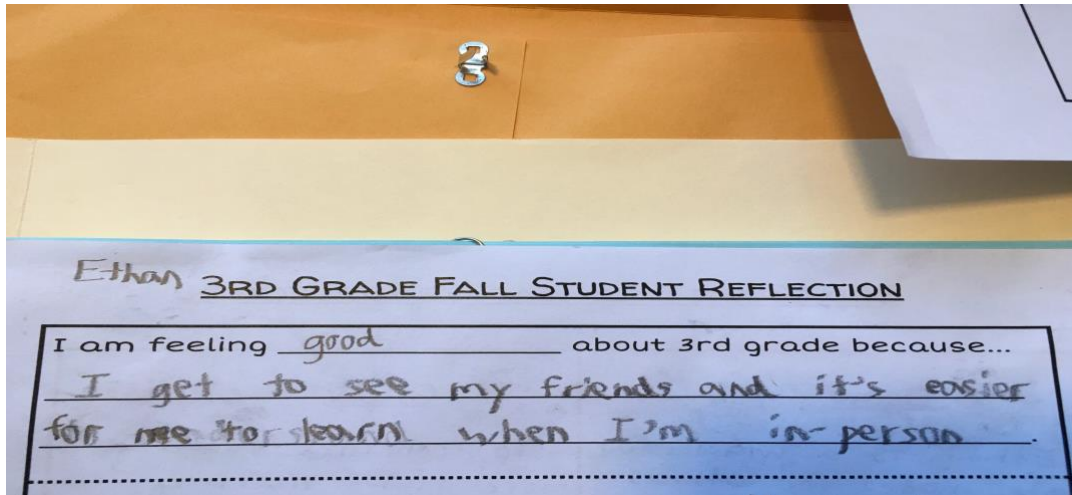 Ethan 3RD GRADE FALL STUDENT REFLECTION
I am feeling good about 3rd grade because...
I get to see my friends and it's easier
for me to learn when I'm in-person.